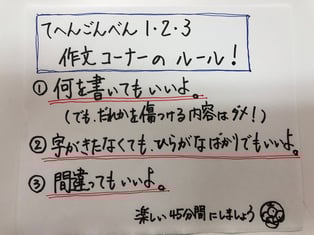 てへんごんべん 1・2・3
作文コーナーの ルール！
① 何を書いてもいいよ。
（でも、だれかを傷つける内容はダメ！）
② 字がきたなくても、ひらがなばかりでもいいよ。
③ 間違ってもいいよ。
楽しい45分間にしましょう